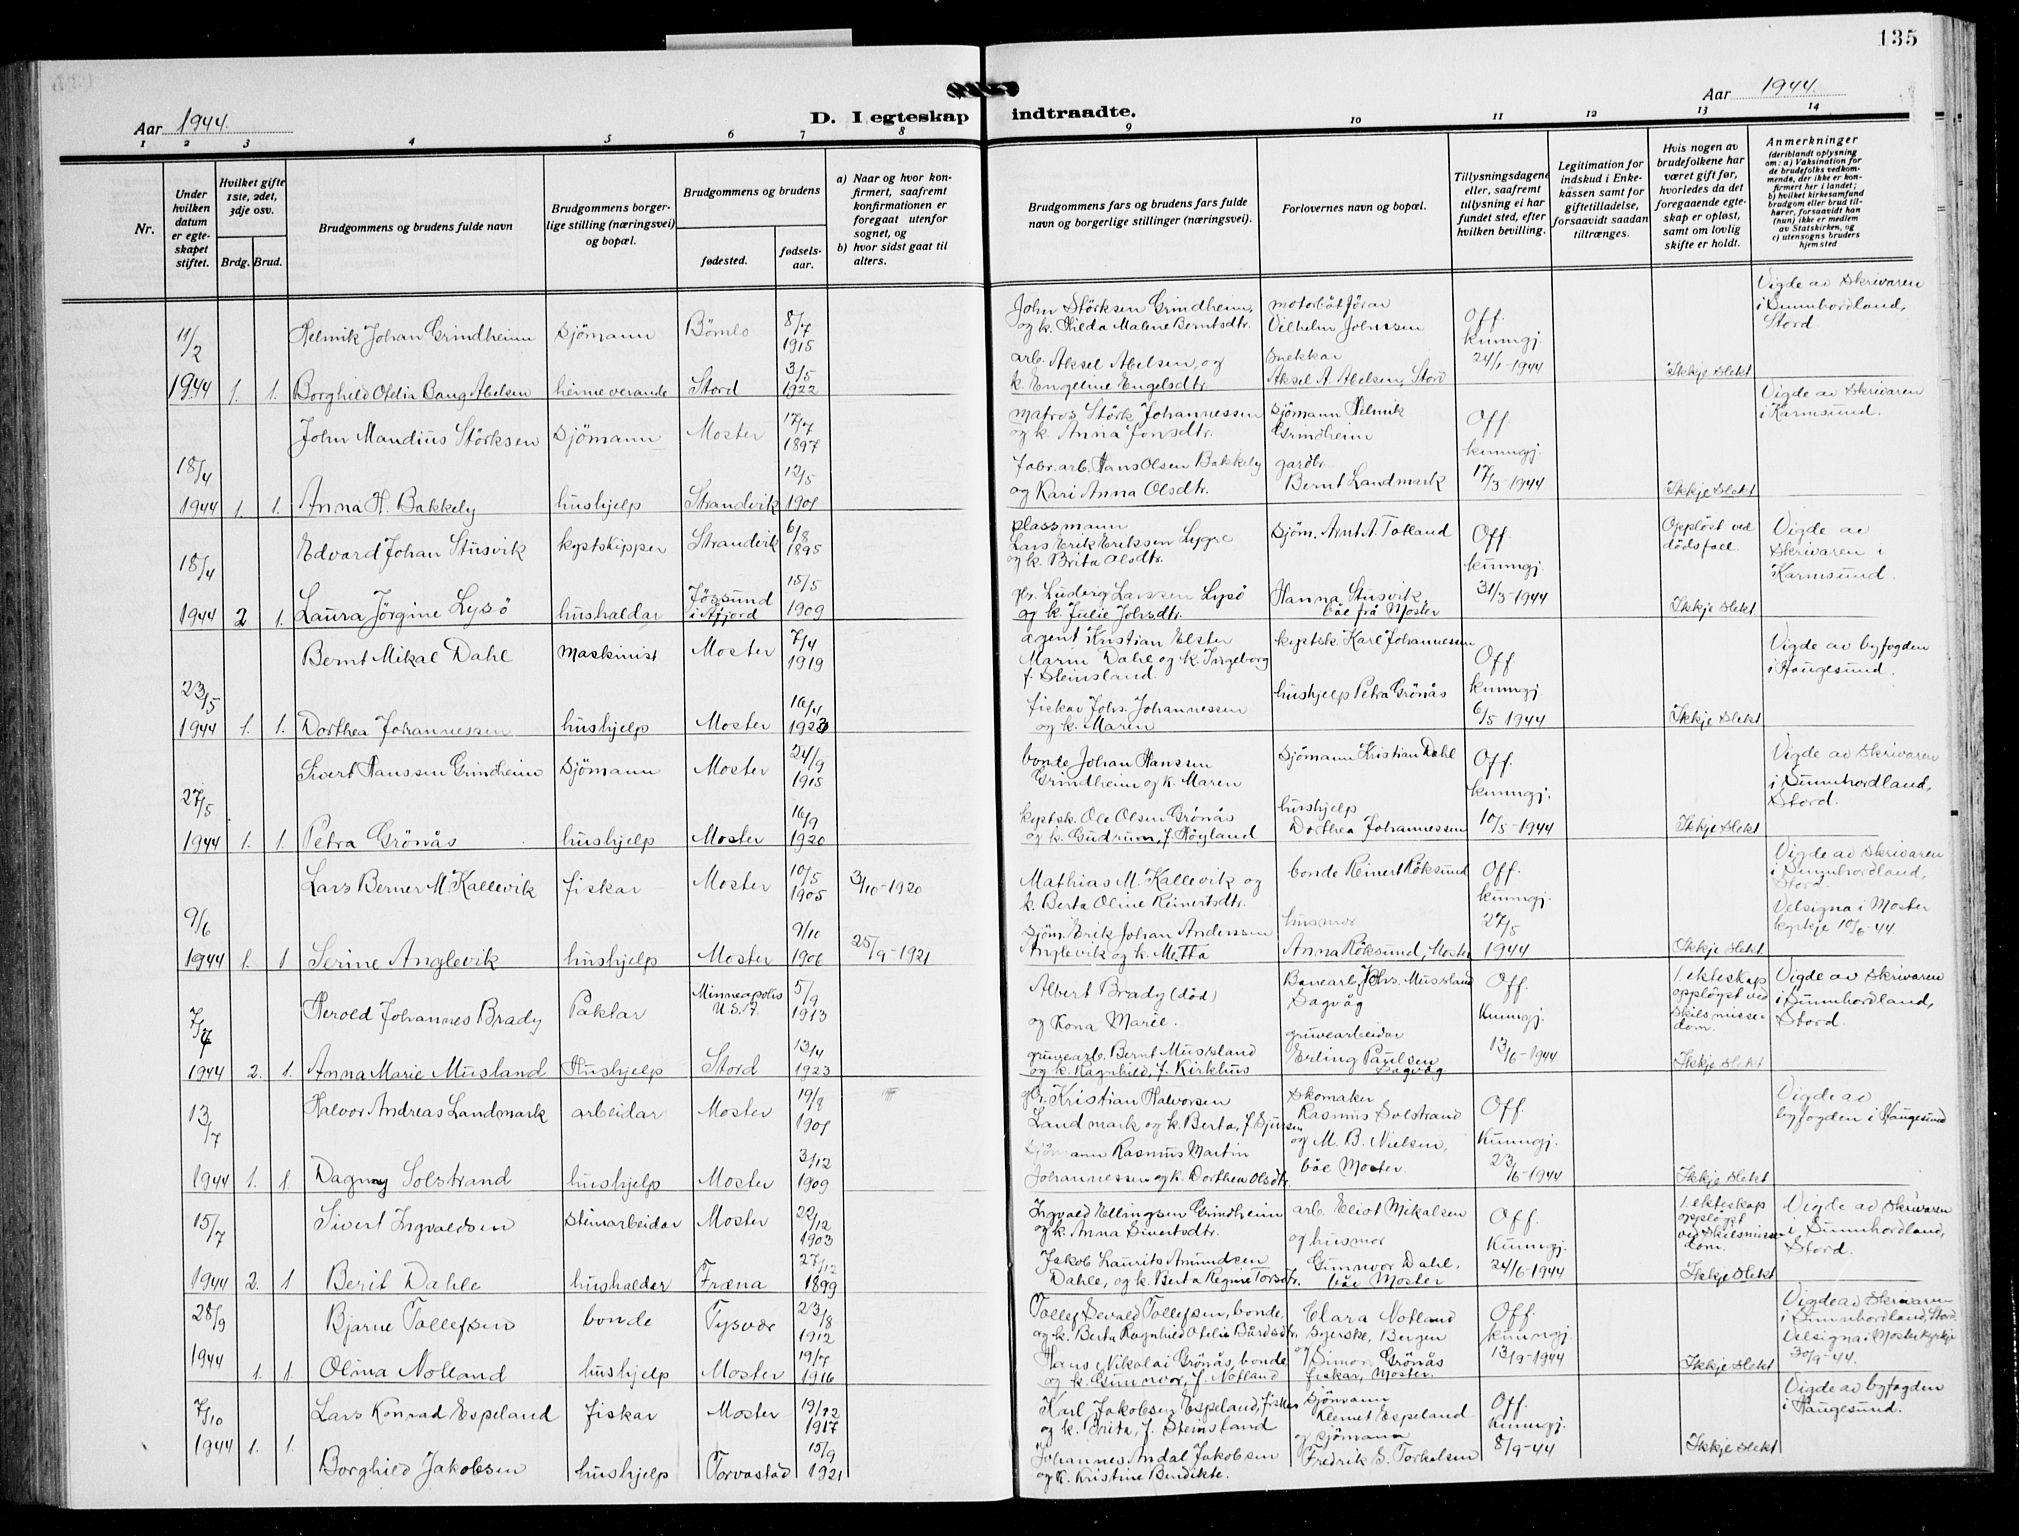 135
Aar 1944.
D. I egteskap indtraadte.
Aar 1944.
1 2 3 4 5 6 7 8 9 10 11 12 13 14
Nr.
Under hvilken datum er egteskapet stiftet.
Hvilket gifte 1ste, 2det, 3dje osv.
Brdg. Brud.
Brudgommens og brudens fulde navn
Brudgommens borgerlige stilling (næringsvei) og bopæl.
Brudgommens og brudens
fødested.
fødselsaar.
a) Naar og hvor konfirmert, saafremt konfirmationen er foregaat utenfor sognet, og
b) hvor sidst gaat til alters.
Brudgommens fars og brudens fars fulde navn og borgerlige stillinger (næringsvei).
Forlovernes navn og bopæl.
Tillysningsdagene eller, saafremt tillysning ei har fundet sted, efter hvilken bevilling.
Legitimation for indskud i Enkekassen samt for giftetilladelse, forsaavidt saadan tiltrænges.
Hvis nogen av brudefolkene har været gift før, hvorledes da det foregaaende egteskap er opløst, samt om lovlig skifte er holdt.
Anmerkninger
(deriblandt oplysning om: a) Vaksination for de brudefolks vedkommende, der ikke er konfirmert her i landet; b) hvilket kirkesamfund brudgom eller brud tilhører, forsaavidt han (hun) ikke er medlem av Statskirken, og c) utensogns bruders hjemsted
11/2 Helmik Johan Grindheim sjömann Bömlo 8/7 1915 John Störksen Grindheim, og k. Hilda Malene Berntsdtr. motorbåtförar Vilhelm Johnsen Off. kunngj. 24/1-1944 Vigde av Skrivaren i Sunnhordland, Stord
1944 1. 1. Borghild Ofelia Bang Abelsen heimeverande Stord 3/5 1922 arb. Aksel Abelsen, og k. Engeline Engelsdtr. snekkar Aksel A. Abelsen, Stord Ikkje slekt
John Mandius Störksen sjömann Moster 17/7 1897 matros Störk Johannessen og k. Anna Jonsdtr. Sjömann Helmik Grindheim Off. kunngj. 17/3-1944 Vigde av Skrivaren i Karmsund.
18/4 1944 1. 1. Anna H. Bakkely hushjelp Strandvik 12/5 1901 fabr.arb. Hans Olsen Bakkely og Kari Anna Olsdtr. gardbr. Bernt Landmark Ikkje slekt
18/4 Edvard Johan Stusvik kystskipper Strandvik 6/8 1895 plassmann Lars Erik Eriksen Lygre og k. Brita Olsdtr. Sjöm. Arnt A. Totland Off. kunngj. 31/3-1944 Opplöst ved dödsfall. Vigde av Skrivaren i Karmsund.
1944 2 1. Laura Jörgine Lysö hushaldar Jössund i Åfjord 15/5 1909 gbr. Ludvig Larssen Lysö og k. Julie Johsdtr. Hanna Stusvik, båe frå Moster Ikkje slekt
Bernt Mikal Dahl maskinist Moster 7/4 1919 agent Kristian Elster Marin Dahl og k. Ingeborg f. Steinsland. kystsk. Karl Johannessen Off kunngj. 6/5 1944 Vigde av byfogden i Haugesund.
23/5 1944 1. 1. Dorthea Johannessen hushjelp Moster 16/4 1923 fiskar Johs. Johannessen og k. Maren hushjelp Petra Grönås Ikkje slekt
Sivert Hanssen Grindheim sjömann Moster 24/9 1915 bonde Johan Hanssen Grindheim og k. Maren Sjömann Kristian Dahl Off. kunngj. 10/5-1944 Vigde av Skrivaren i Sunnhordland, Stord.
27/5 1944 1. 1. Petra Grönås hushjelp Moster 16/9 1920 kystsk. Ole Olsen Grönås og k. Gudrun, f. Högland hushjelp Dorthea Johannessen Ikkje slekt
Lars Berner M. Kallevik fiskar Moster 10/5 1905 3/10-1920 Mathias M. Kallevik og k. Berta Oline Reinertsdtr. bonde Reinert Röksund Off. kunngj. 27/5 1944 Vigde av Skrivaren i Sunnhordland, Stord. Velsigna i Moster kyrkje 10/6-44.
9/6 1944 1. 1 Serine Anglevik hushjelp Moster 9/10 1906 25/9-1921 Sjöm. Erik Johan Anderssen Anglevik og k. Metta husmor Anna Röksund, Moster Ikkje slekt
7/7 Herold Johannes Brady Paktar Minneapolis U.S.A. 5/9 1913 Albert Brady (död) og Kona Marie. Banearb. Johs. Mussland Sagvåg Off. Kunngj. 13/6-1944 1. ekteskap opplöyst ved skilsmissedom. Vigde av Skrivaren i Sunnhordland, Stord.
1944 2. 1. Anna Marie Musland Hushjelp Stord 13/4 1923 gruvearb. Bernt Mussland og k. Ragnhild, f. Kirkhus gruvearbeidar Erling Paulsen Sagvåg Ikkje slekt
13/7 Halvor Andreas Landmark arbeidar Moster 19/8 1901 gbr. Kristian Halvorsen Landmark og k. Berta, Skomaker Rasmus Solstrand og M. B. Nielsen, båe Moster. Off. Kunngj. 23/6-1944 Vigde av byfogden i Haugesund
1944 1. 1. Dagny Solstrand hushjelp Moster 3/12 1909 Sjömann Rasmus Martin Johannessen og k. Dorthea Olsdtr. Ikkje slekt
15/7 Sivert Ingvaldsen Steinarbeidar Moster 22/12 1903 Ingvald Ellingsen Grindheim og k. Anna Sivertsdtr. arb. Eliot Mikalsen og husmor Gunnvor Dahl, båe Moster Off. Kunngj. 24/6-1944 1. ekteskap opplöyst ved skilsmissedom. Vigde av Skrivaren i Sunnhordland, Stord.
1944 2. 1 Berit Dahle hushaldar Fræna 27/12 1899 Jakob Laurits Amundsen Dahle, og k. Berta Regine Torsdtr. Ikkje slekt
28/9 Bjarne Tollefsen bonde Tysvær 23/8 1912 Tollef Sevald Tollefsen, bonde, og k. Berta Ragnhild Otelia Bårdsdtr. Clara Notland Syerske, Bergen Off. kunngj. 13/9-1944 Vigde av Skrivaren i Sunnhordland, Stord. Velsigna i Moster kyrkje 30/9-44.
1944 1. 1. Olina Notland hushjelp Moster 19/7 1916 Hans Nikolai Grönås, bonde og k. Gunnvor, f. Notland og Simon Grönås fiskar, Moster. Ikkje slekt
7/10 Lars Konrad Espeland fiskar Moster 19/12 1917 Karl Jakobsen Espeland, fiskar og k. Brita, f. Steinsland Sjömann Klemet Espeland Off. Kunngj. 8/9-44 Vigde av byfogden i Haugesund.
1944 1. 1. Borghild Jakobsen hushjelp Torvastad 15/9 1921 Johannes Andal Jakobsen og k. Kristine Bendikte. og sjömann Fredrik S. Torkelsen Ikkje slekt